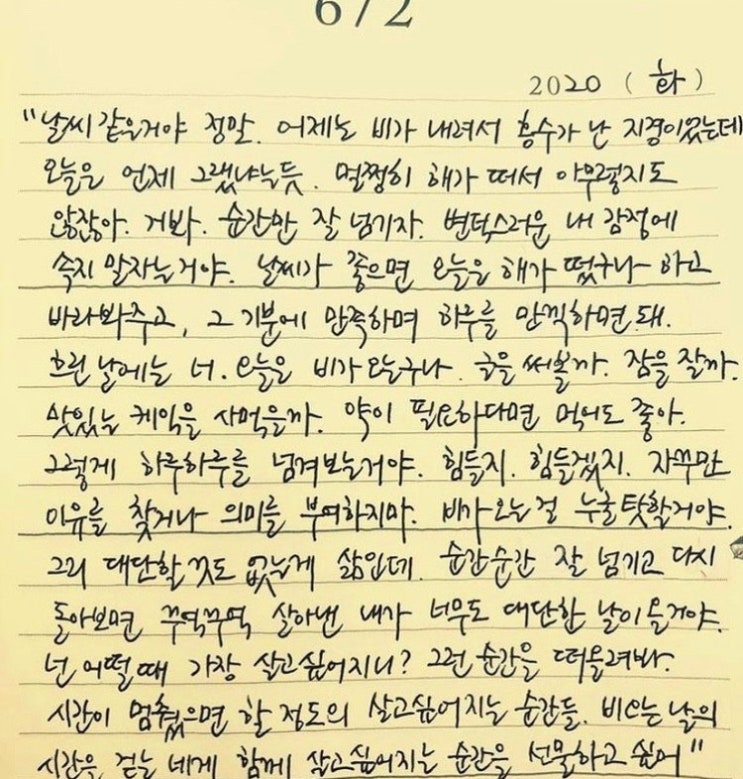 672
2020 (화)
"날씨 같은거야 정말. 어제는 비가 내려서 홍수가 난 지경이었는데
오늘은 언제 그랬냐는듯. 멀쩡히 해가 떠서 아무렇지도
않잖아. 거봐. 순간만 잘 넘기자. 변덕스러운 내 감정에
속지 말자는거야. 날씨가 좋으면 오늘은 해가 떴구나 하고
바라봐주고, 그 기분에 만족하며 하루를 만끽하면 돼.
흐린 날에는 너. 오늘은 비가 오는구나. 글을 써볼까. 잠을 잘까.
맛있는 케익을 사먹을까. 약이 필요하다면 먹어도 좋아.
그렇게 하루하루를 넘겨보는거야. 힘들지. 힘들겠지. 자꾸만
이유를 찾거나 의미를 부여하지마. 비가오는걸 누굴 탓할거야.
그리 대단할 것도 없는게 삶인데. 순간순간 잘 넘기고 다시
돌아보면 꾸역꾸역 살아낸 내가 너무도 대단한 날이 올거야.
넌 어떨 때 가장 살고 싶어지니? 그런 순간을 떠올려봐.
시간이 멈췄으면 할 정도의 살고싶어지는 순간들. 비오는 날의
시간을 걷는 네게 함께 살고싶어지는 순간을 선물하고 싶어"